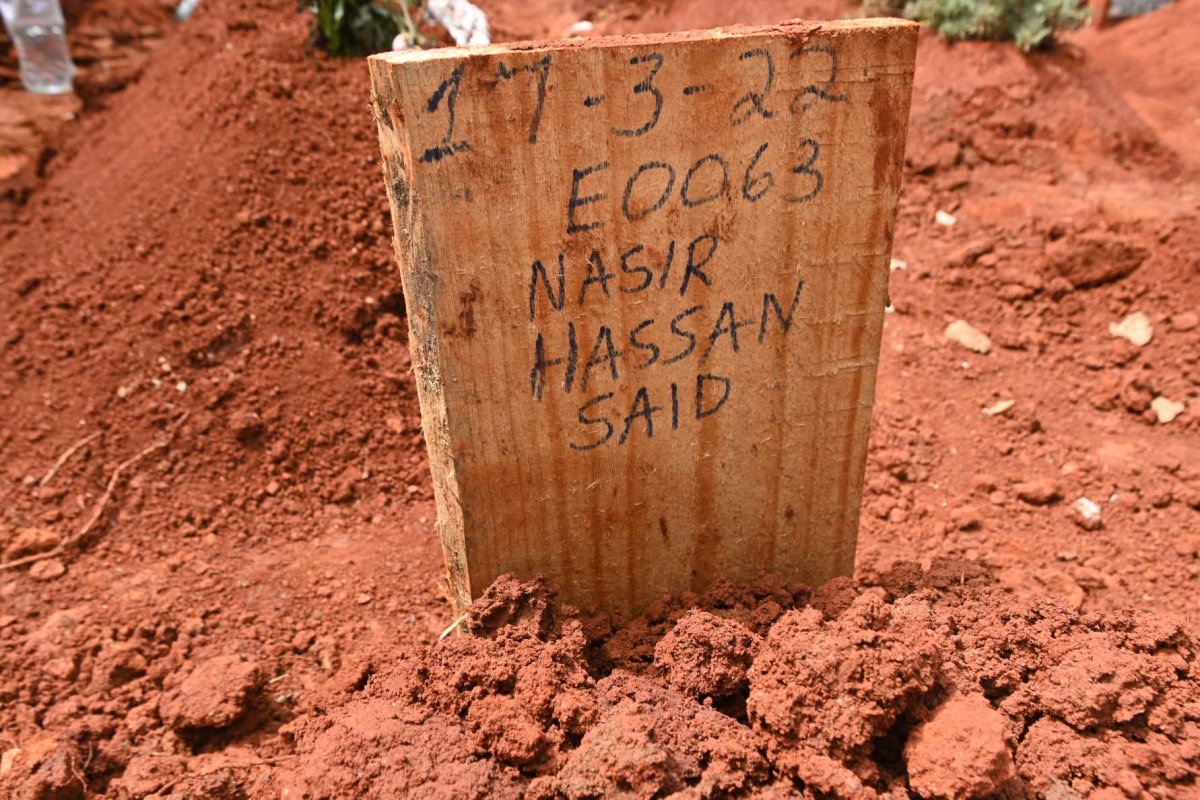 17-3-22
E0063
NASIR
HASSAN
SAID